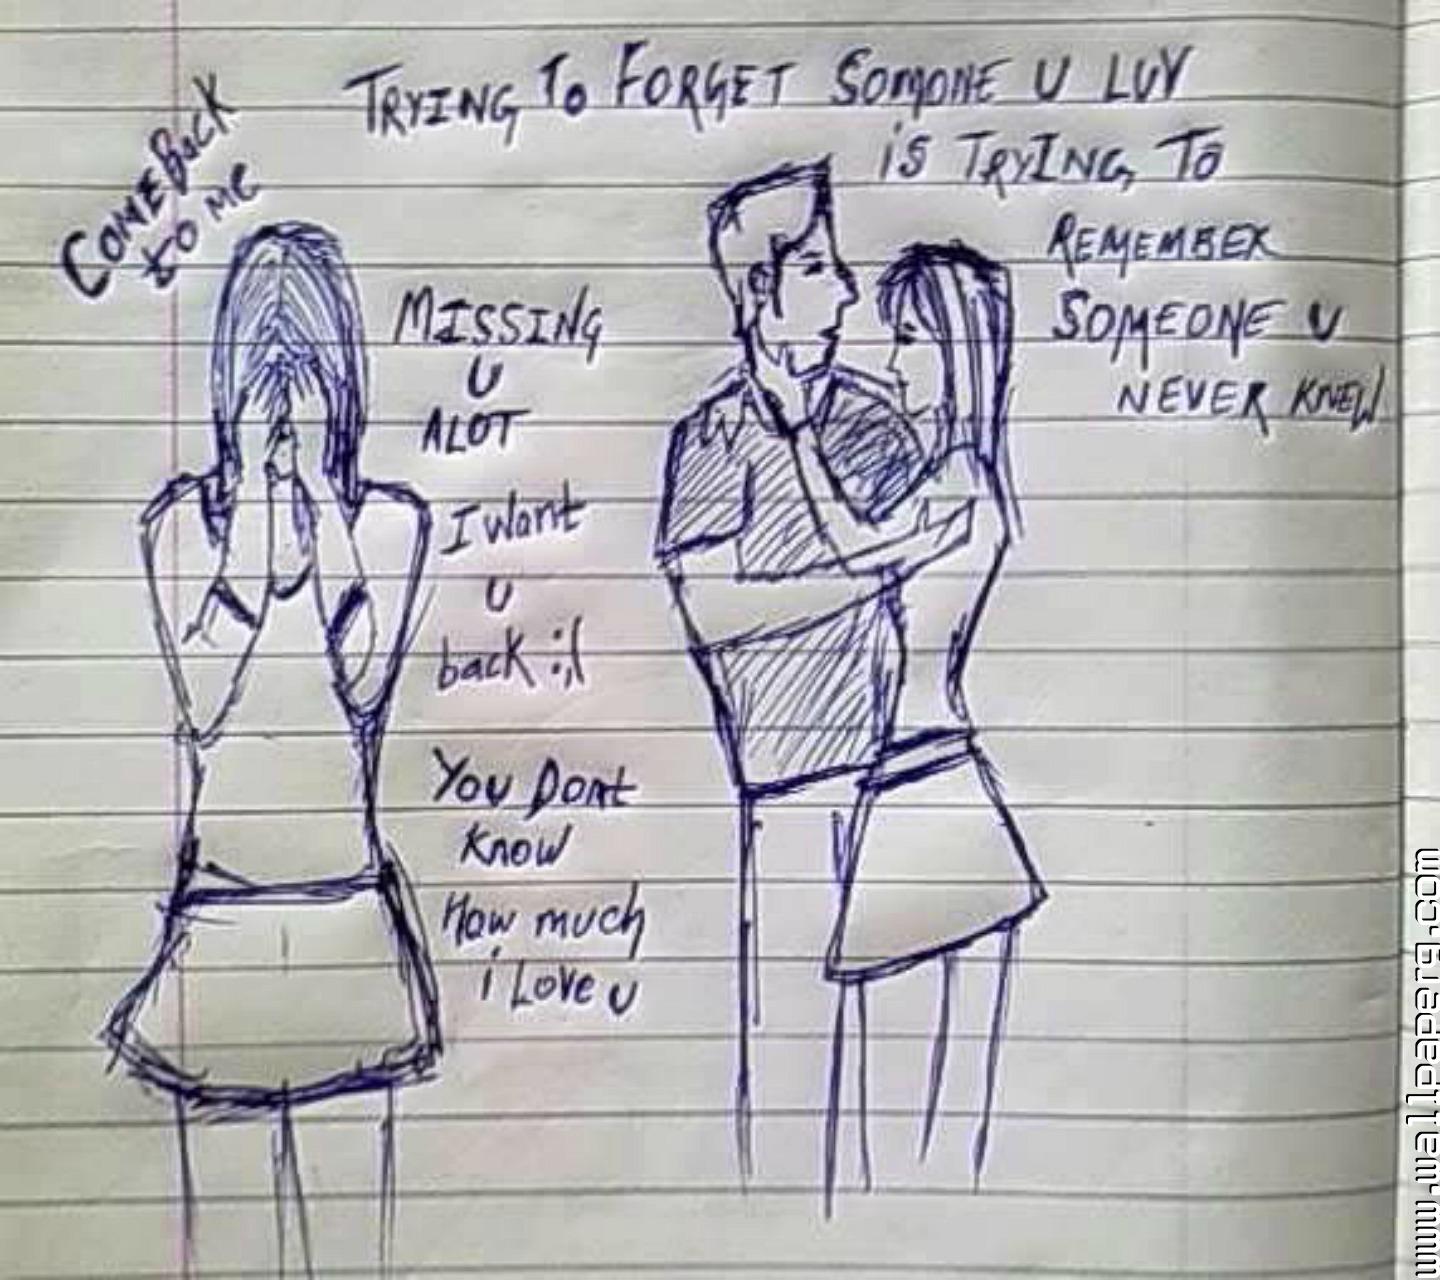 TRYING To FORGET SOMONE U LUV
iS TRYING TO
REMEMBER
SOMEONE U
NEVER KNEW
COMEBacK
to ME
MISSING
U
ALOT
I Want
U
back :,(
You Dont
Know
How much
i Love u
www.wallpaperg.com